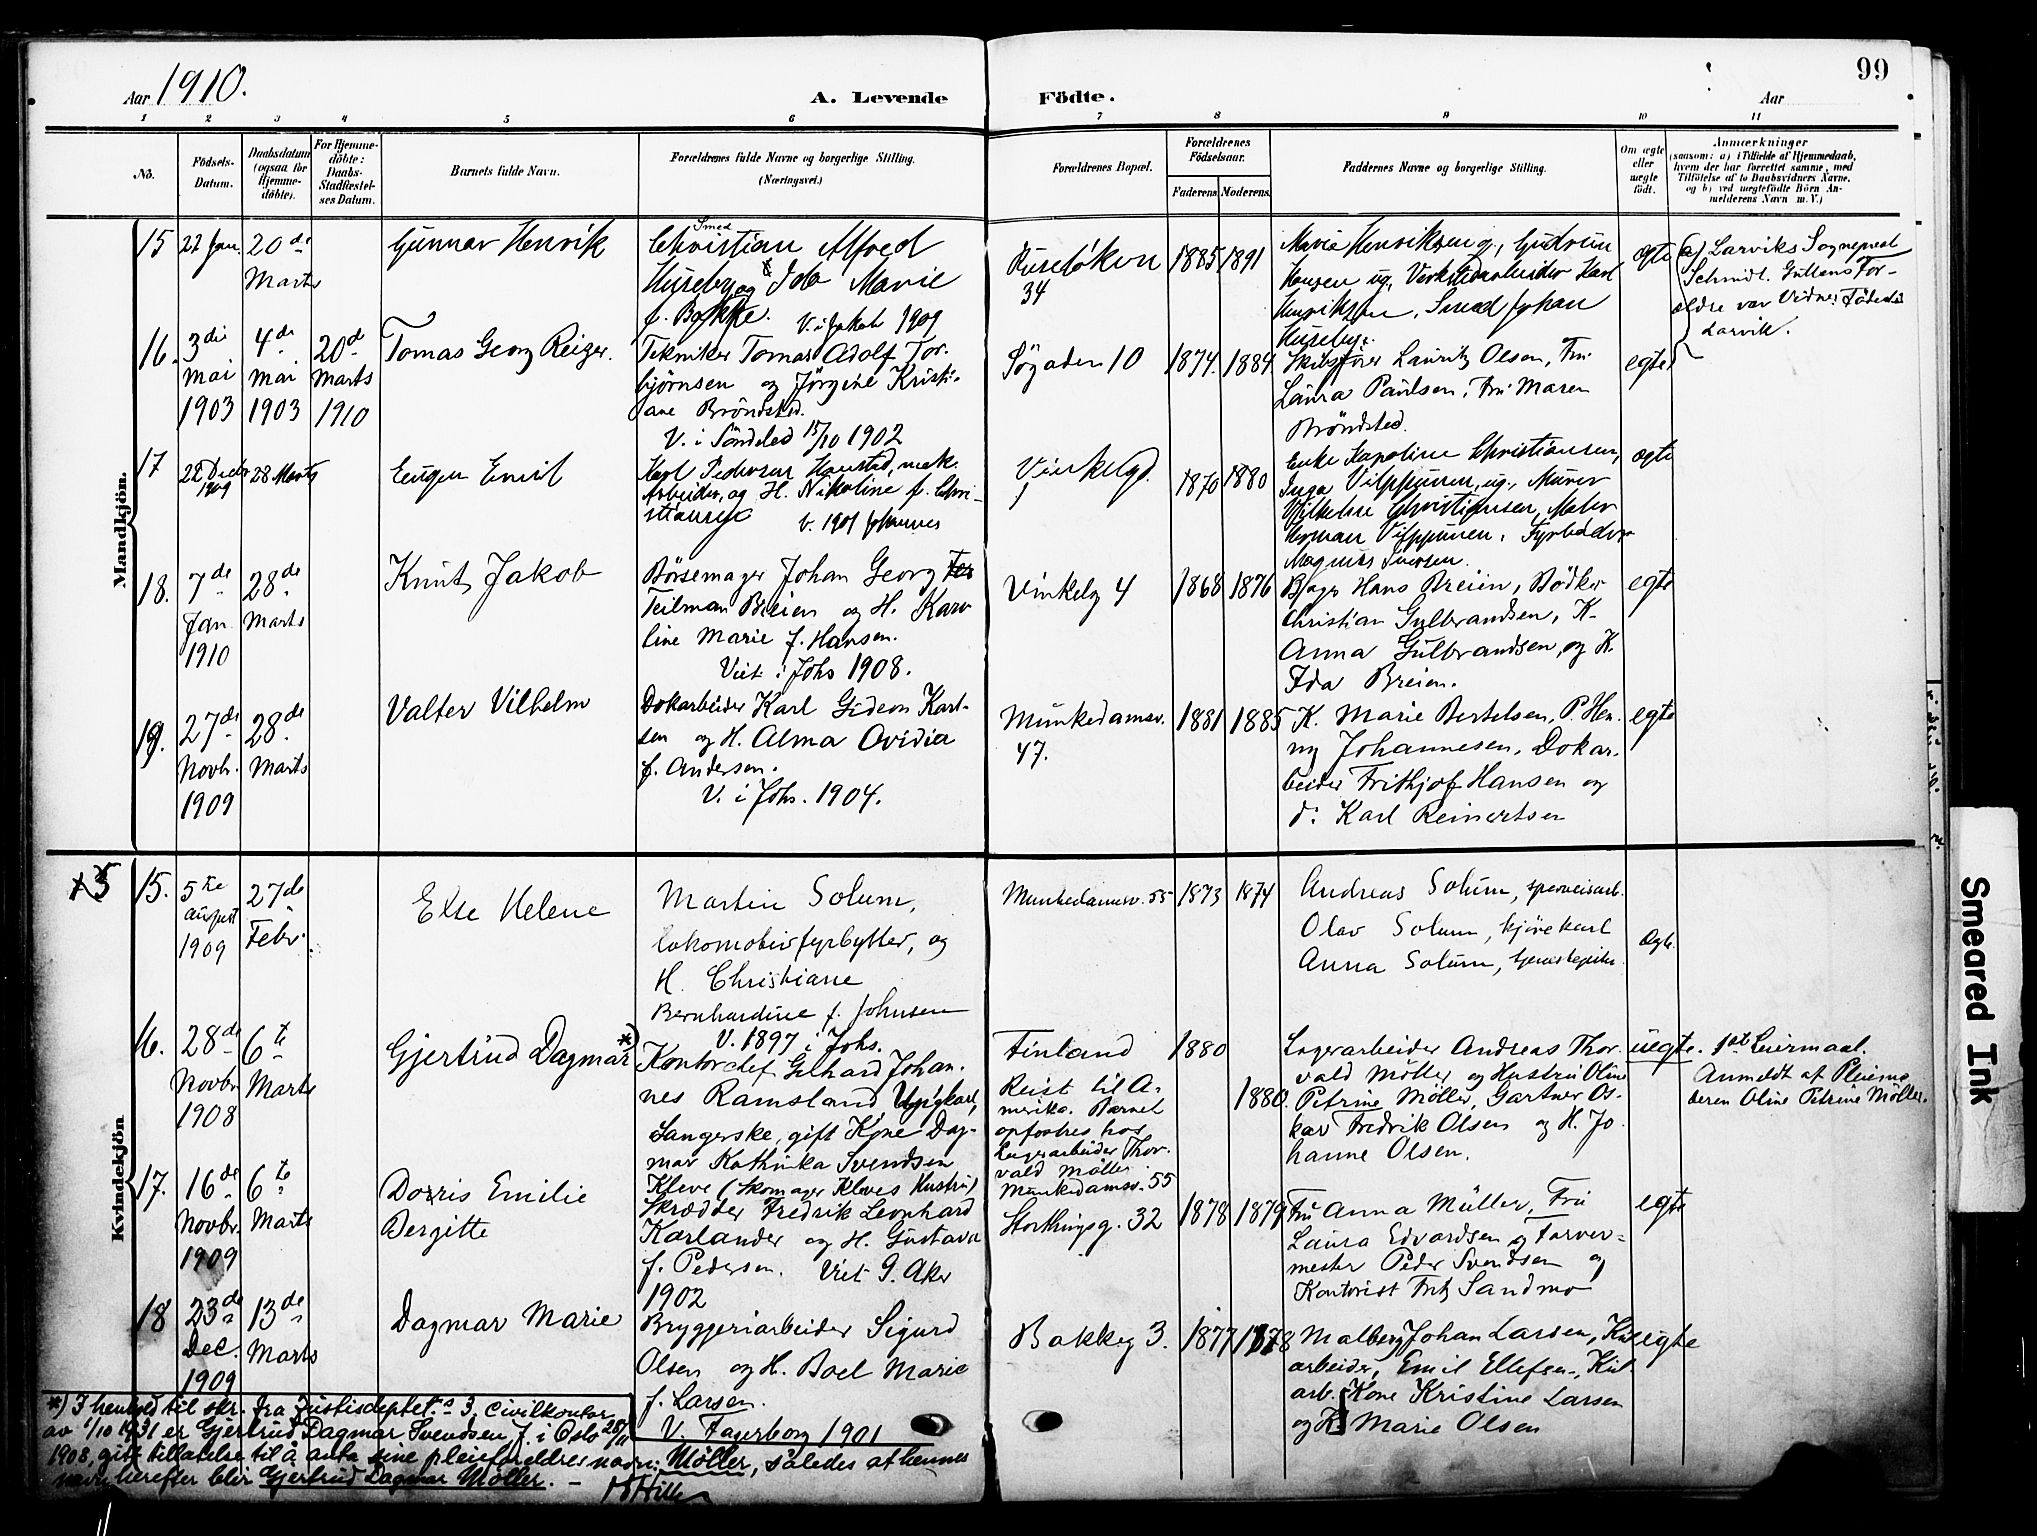 Aar 1910.
A. Levende Födte.
Aar
99
1 2 3 4 5 6 7 8 9 10 11
No.
Födsels-Datum.
Daabsdatum (ogsaa for Hjemme-döbte).
For Hjemme-döbte: Daabs-Stadfæstel-ses Datum.
Barnets fulde Navn.
Forældrenes fulde Navne og borgerlige Stilling. (Næringsvei.)
Forældrenes Bopæl.
Forældrenes Födselsaar.
Faderens. Moderens.
Faddernes Navne og borgerlige Stilling.
Om ægte eller uægte födt.
Anmærkninger
(saasom: a) i Tilfælde af Hjemmedaab,
hvem der har forrettet samme, med
Tilföielse af to Daabsvidners Navne,
og b) ved uægtefödte Börn An-
melderens Navn m. V.)
Mandkjön.
15 22 Jan. 20de Marts
Gunnar Henrik
Smed
Christian Alfred
Huseby og Ida Marie
f. Bakke.
V. i Jakob 1909
Ruseløkvn
34
1885 1891
Marie Henriksen ug., Gudrun
Hansen ug, Verkstedarbeider Karl
Henriksen, Smed Johan
Huseby.
egte
(a) Larviks Sogneprest
Schmidt. Guttens For-
ældre var Vidner. Födested
Larvik.
16. 3die mai 1903 4de mai 1903 20de Marts 1910
Tomas Georg Reizer.
Tekniker Tomas Adolf Tor-
bjørnsen og Jörgine Kristi-
ane Bröndsted.
V. i Söndeled 15/10 1902
Søgaden 10
1874. 1884
Skibsfører Lauritz Olsen, Fru
Laura Paulsen, Fru Maren
Bröndsted.
egte
17 22 Decbr 1909 28 Marts
Eugen Emil
Karl Pedersen Haustad, mek.
Arbeider, og H. Nikoline f. Chri-
stiansen
V. 1901 Johannes
Vinkelgd.
1
1870 1880
Enke Karoline Christiansen,
Inga Vilppunen, ug., Murer
Vilhelm Christiansen, Maler
Herman Vilppunen, Fyrbøder
Magnus Iversen.
ægte
18. 7de Jan. 1910 28de Marts
Knut Jakob
Børsemager Johan Georg
Teilman Breien og H. Karo
line Marie f. Hansen.
Viet i Johs 1908.
Vinkelg 4
1868 1876
Bager Hans Breien, Bödker
Christian Gulbrandsen, K.
Anna Gulbrandsen, og K.
Ida Breien.
egte
19. 27de Novbr. 1909 28de Marts
Valter Vilhelm
Dokarbeider Karl Gideon Karl-
sen og H. Alma Ovidia
f. Andersen.
V. i Johs. 1904.
Munkedamsv.
47.
1881 1885
K. Marie Bertelsen, P. Hen-
ny Johannesen, Dokar-
beider Frithjof Hansen og
d: Karl Reinertsen
egte
Kvindekjön
15. 5te august 1909 27de Febr.
Else Helene
Martin Solum,
lokomotivfyrbytter, og
H. Christiane
Bernhardine f. Johnsen
V. 1897 i Johs.
Munkedamsv. 55
1873 1874
Andreas Solum, sporveisarb.
Olav Solum, kjørekarl
Anna Solum, tjenestepike
Ægte.
16. 28de Novbr 1908 6te Marts
Gjertrud Dagmar *)
Kontorchef Gerhard Johan-
nes Ramsland Ungkarl,
Sangerske, gift Kone Dag-
mar Kathinka Svendsen
Kleve (Skomager Kleves Hustru)
Finland
Reist til A-
merika. Barnet
opfostres hos
Lagerarbeider Thor-
vald Möller
Munkedamsv. 55
1880
1880.
Lagerarbeider Andreas Thor-
vald Möller og Hustru Oline
Petrine Möller, Gartner Os-
kar Fredrik Olsen og H. Jo
hanne Olsen.
uegte. 1ste Leiermaal.
Anmeldt af Pleiemo
deren Oline Petrine Möller.
17. 16de Novbr 1909 6te Marts
Dorris Emilie
Bergitte
Skrædder Fredrik Leonhard
Karlander og H. Gustava
f. Pedersen. Viet G. Aker
1902
Storthingsg. 32
1878 1879
Fru Anna Müller, Fru
Laura Edvardsen, Farver-
mester Peder Svendsen og
Kontorist Fritz Sandmo
egte
18 23de Dec. 1909 13de Marts
Dagmar Marie
Bryggeriarbeider Sigurd
Olsen og H. Boel Marie
f. Larsen.
V. Fagerborg 1901
Bakkeg 3.
1877 1878
Malersv Johan Larsen,
arbeider, Emil Ellefsen,
arb. Kone Kristine Larsen
og K. Marie Olsen
egte
*) I henhold til skr. fra Justisdeptets 3. Civilkontor
av 1/10 1931 er Gjertrud Dagmar Svendsen, f. i Oslo 28/11
1908, gitt tillatelse til å anta sine pleieforeldres navn: Möller, således at hennes
navn herefter blir Gjertrud Dagmar Möller. –
Smeared Ink